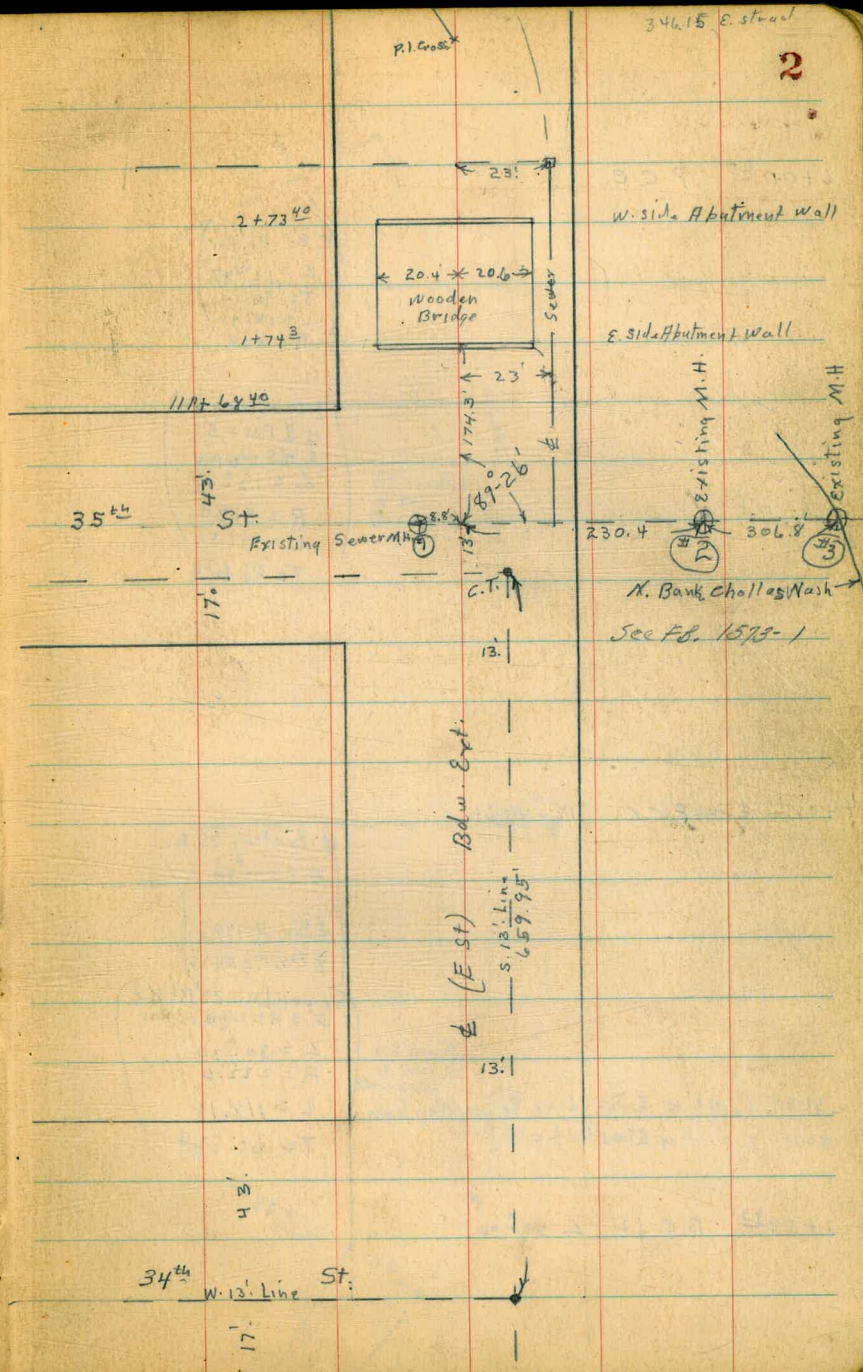 346.15 E. strad
2
P.I. Cross
23'
2+73 40
W. side Abutment wall
20.4 20.6
Wooden
Bridge
Sewer
1+74 3
E. side Abutment Wall
23'
11+68 40
174.3'
℄
Existing M.H.
Existing M.H
43'
89°-26'
35th St.
8.8
230.4
306.8
Existing Sewer MH
#1
13'
#2
#3
C.T.
N. Bank Chollas Wash
17'
See F.B. 1573-1
13'
℄ (E St) Bdw. Ext.
S. 13' Line
659.95'
13'
43'
34th St.
W. 13' Line
17'